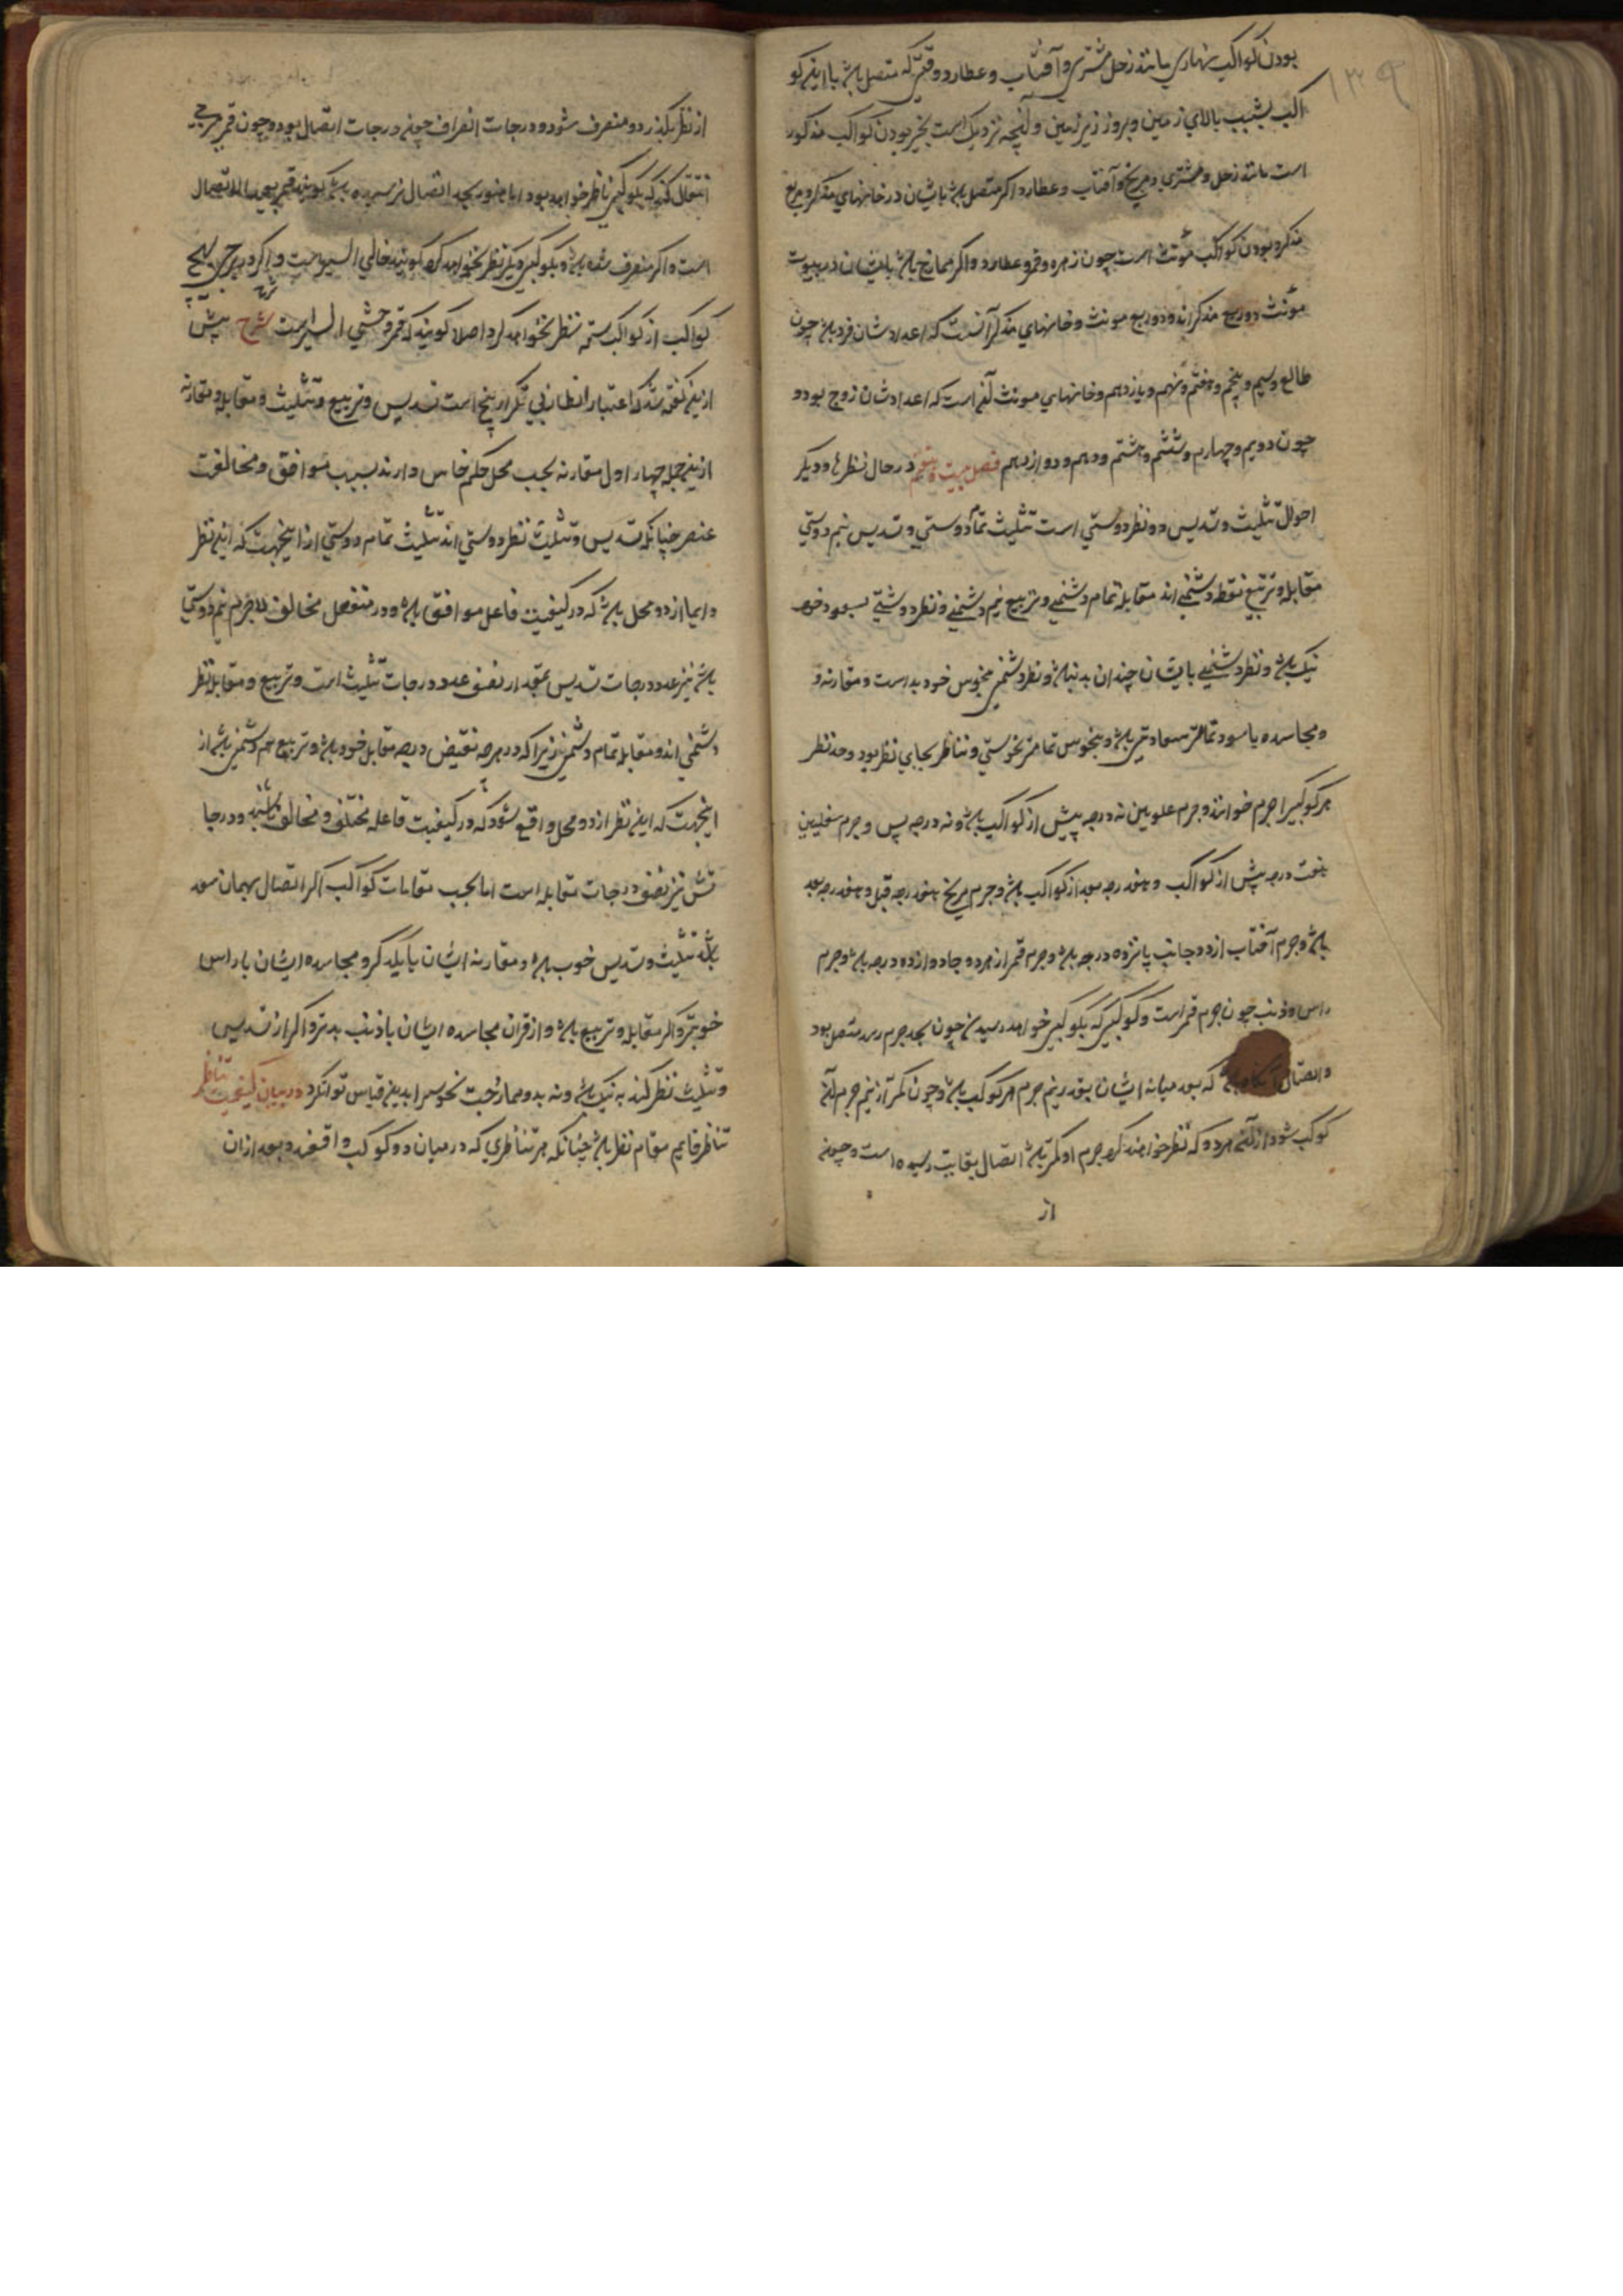 ۱۳۹
بودن کواکب نهاری مانند زحل مشتری و آفتاب و عطارد وقتی که متصل باشد با این کو
اکب بشب بالای زمین و بروز زیر زمین و آنچه نزدیک است بخیر بودن کواکب مذکور
است مانند زحل و مشتری و مریخ و آفتاب و عطارد اگر متصل باشد بایشان در خانهای مذکر و مربع
مذکر و بودن کواکب مؤنث است چون زهره و قمر و عطارد و اگر ممازج باشد بایشان در بیوت
مؤنث دو ربع مذکراند و دو ربع مونث و خانهای مذکر آنست که اعدادشان فرد باشد چون
طالع و سیم و پنجم و هفتم و نهم و یازدهم و خانهای مونث آنی است که اعدادشان زوج بود و
چون دویم و چهارم و ششم و هشتم و دهم و دوازدهم فصل بیست و در حال نظر و دیگر
احوال تثلیث و تسدیس دو نظر دوستی است تثلیث تمام دوستی و تسدیس نیم دوستی
مقابله و تربیع نقطه دشمنی اند مقابله تمام دشمنی و تربیع نیم دشمنی و نظر دوستی بسعود خود
نیک باشد و نظر دشمنی بایشان چندان بد نباشد و نظر دشمنی بنحوس خود بد است و مقارنه و
و مجاسده با سعود تمامتر سعادتی باشد و بنحوس تمامتر نحوستی و تناظر بجای نظر بود و حد نظر
هر کوکبی را جرم خوانند و جرم علویین نه درجه پیش از کواکب باشد و نه درجه پس و جرم سفلیین
بهفت درجه پیش از کواکب و بهفت درجه بعد از کواکب باشد و جرم مریخ بهفت درجه قبل و بهفت درجه بعد
باشد و جرم آفتاب از دو جانب پانزده درجه باشد و جرم قمر از هر دو جا دوازده درجه باشد و جرم
راس و ذنب چون جرم قمر است و کوکبی که بکوکبی خواهد رسیدن چون بحد جرم رسد متصل بود
و اتصال باشد که بعد میانه ایشان بقدر نیم جرم هر کوکب باشد و چون کمتر از نیم جرم آن
کوکب شود از آن هر دو که نظر خواهند کرد جرم او کمتر باشد اتصال بغایت رسیده است و چون
از
از نظر بگذرد و منصرف شود و درجات انصراف چون درجات اتصال بود و چون قمر ببرجی
انتقال کند که بکوکبی ناظر خواهد بود اما هنوز بحد اتصال نرسیده باشد گویند قمر بعید الاتصال
است و اگر منصرف شده باشد و بکوکبی دیگر نظر نخواهد کرد گویند خالی السیر است و اگر در برجی بهیچ
کواکب از کواکب سته نظر نخواهد کرد اصلا گویند که قمر وحشی السیر است شرح پیش
ازین گفته شد که اعتبار انظار بی تکرار پنج است تسدیس و تربیع و تثلیث و مقابله و مقارنه
ازین جمله چهار اول مقارنه بحسب محل حکم خاص دارند بسبب موافق و مخالفت
عنصر چنانکه تسدیس و تثلیث نظر دوستی اند تثلیث تمام دوستی از اینجهت که این نظر
دایما از دو محل باشد که در کیفیت فاعل موافق باشد و در منفعل مخالف لاجرم نیم دوستی
باشد نیز عدد درجات تسدیس بمقدار نصف عدد درجات تثلیث است و تربیع و مقابله نظر
دشمنی اند و مقابله تمام دشمنی زیرا که در هر چه نقیض درجه مقابل خود باشد و تربیع هم دشمنی باشد از
اینجهت که این نظر از دو محل واقع شود که در کیفیت فاعله مختلف و مخالف باشند و درجا
تش نیز نصف درجات مقابله است اما بحسب مقامات کواکب اگر اتصال بهمان سعد
باشد تثلیث و تسدیس خوب باشد و مقارنه ایشان با یکدیگر و مجاسده ایشان با راس
خوبتر و اگر مقابله و تربیع باشد و از قران مجاسده ایشان با ذنب بدتر و اگر از تسدیس
و تثلیث نظر کنند به نیک باشد و نه بد و ممازجت نحوس را بدین قیاس توان کرد در بیان کیفیت تناظر
تناظر قایم مقام نظر باشد چنانکه هر تناظری که در میان دو کوکب واقف و بعد ازان